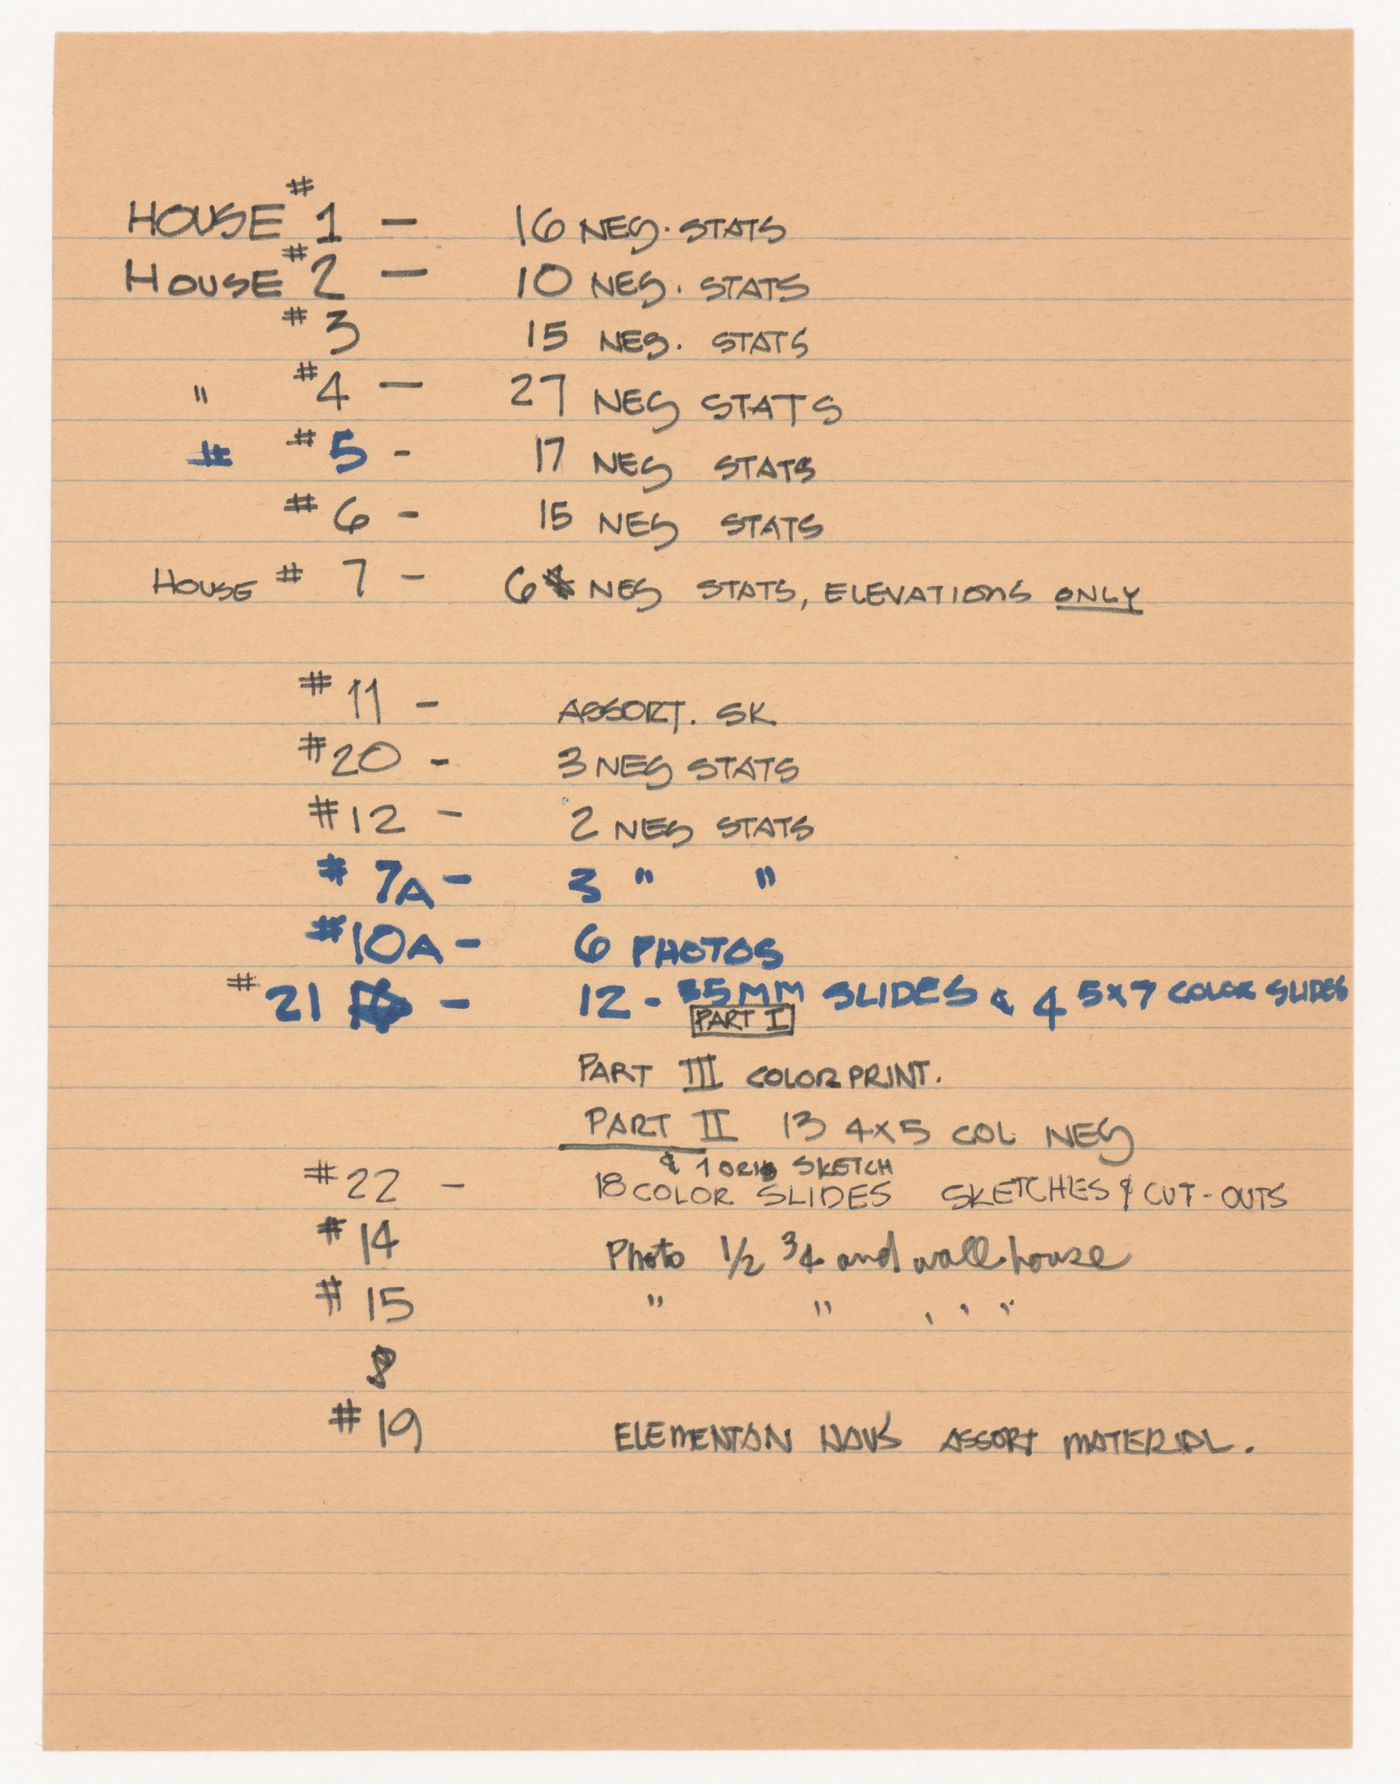 HOUSE #1 — 16 NEG. STATS
HOUSE #2 — 10 NEG. STATS
#3 15 NEG. STATS
" #4 — 27 NEG STATS
#5 - 17 NEG STATS
#6 - 15 NEG STATS
HOUSE # 7 - 6 NEG STATS, ELEVATIONS ONLY
#11 - ASSORT. SK
#20 - 3 NEG STATS
#12 - 2 NEG STATS
# 7A - 3 " "
#10A - 6 PHOTOS
# 21 - 12 - 35MM SLIDES & 4 5X7 COLOR SLIDES
PART I
PART III COLOR PRINT.
PART II 13 4X5 COL NEG
& 1 ORIG SKETCH
#22 - 18 COLOR SLIDES SKETCHES & CUT-OUTS
#14 Photo 1/2 3/4 and wall house
#15 " " " "
8
#19 ASSORT MATERIAL.